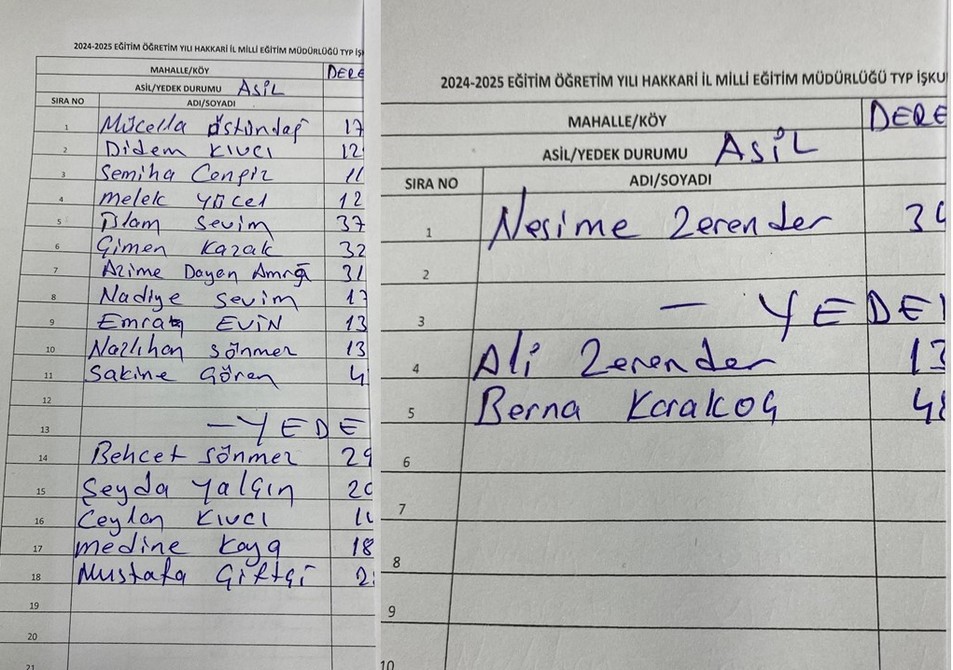 2024-2025 EĞİTİM ÖĞRETİM YILI HAKKARİ İL MİLLİ EĞİTİM MÜDÜRLÜĞÜ TYP İŞ
MAHALLE/KÖY DERE
ASİL/YEDEK DURUMU ASİL
SIRA NO ADI/SOYADI
1 Mücella üstündağ 17
2 Didem KIVCI 12
3 Semiha Cengiz 11
4 melek YÜCEL 12
5 Sevim 37
6 Çimen Kazak 32
7 Azime Dayan 31
8 Nadiye Sevim 17
9 Emrah EVİN 13
10 Nazlıhan Sönmez 13
11 Sakine Gören 4
12
13 — YEDE
14 Behcet Sönmez 29
15 Şeyda Yalçın 20
16 Ceylan KIVCI
17 medine Kaya 18
18 Mustafa Çiftçi 2
19
20
21
2024-2025 EĞİTİM ÖĞRETİM YILI HAKKARİ İL MİLLİ EĞİTİM MÜDÜRLÜĞÜ TYP İŞKU
MAHALLE/KÖY DERE
ASİL/YEDEK DURUMU ASİL
SIRA NO ADI/SOYADI
1 Nesime Zerender 34
2
3 — YEDE
4 Ali Zerender 13
5 Berna Karakoç 48
6
7
8
9
10